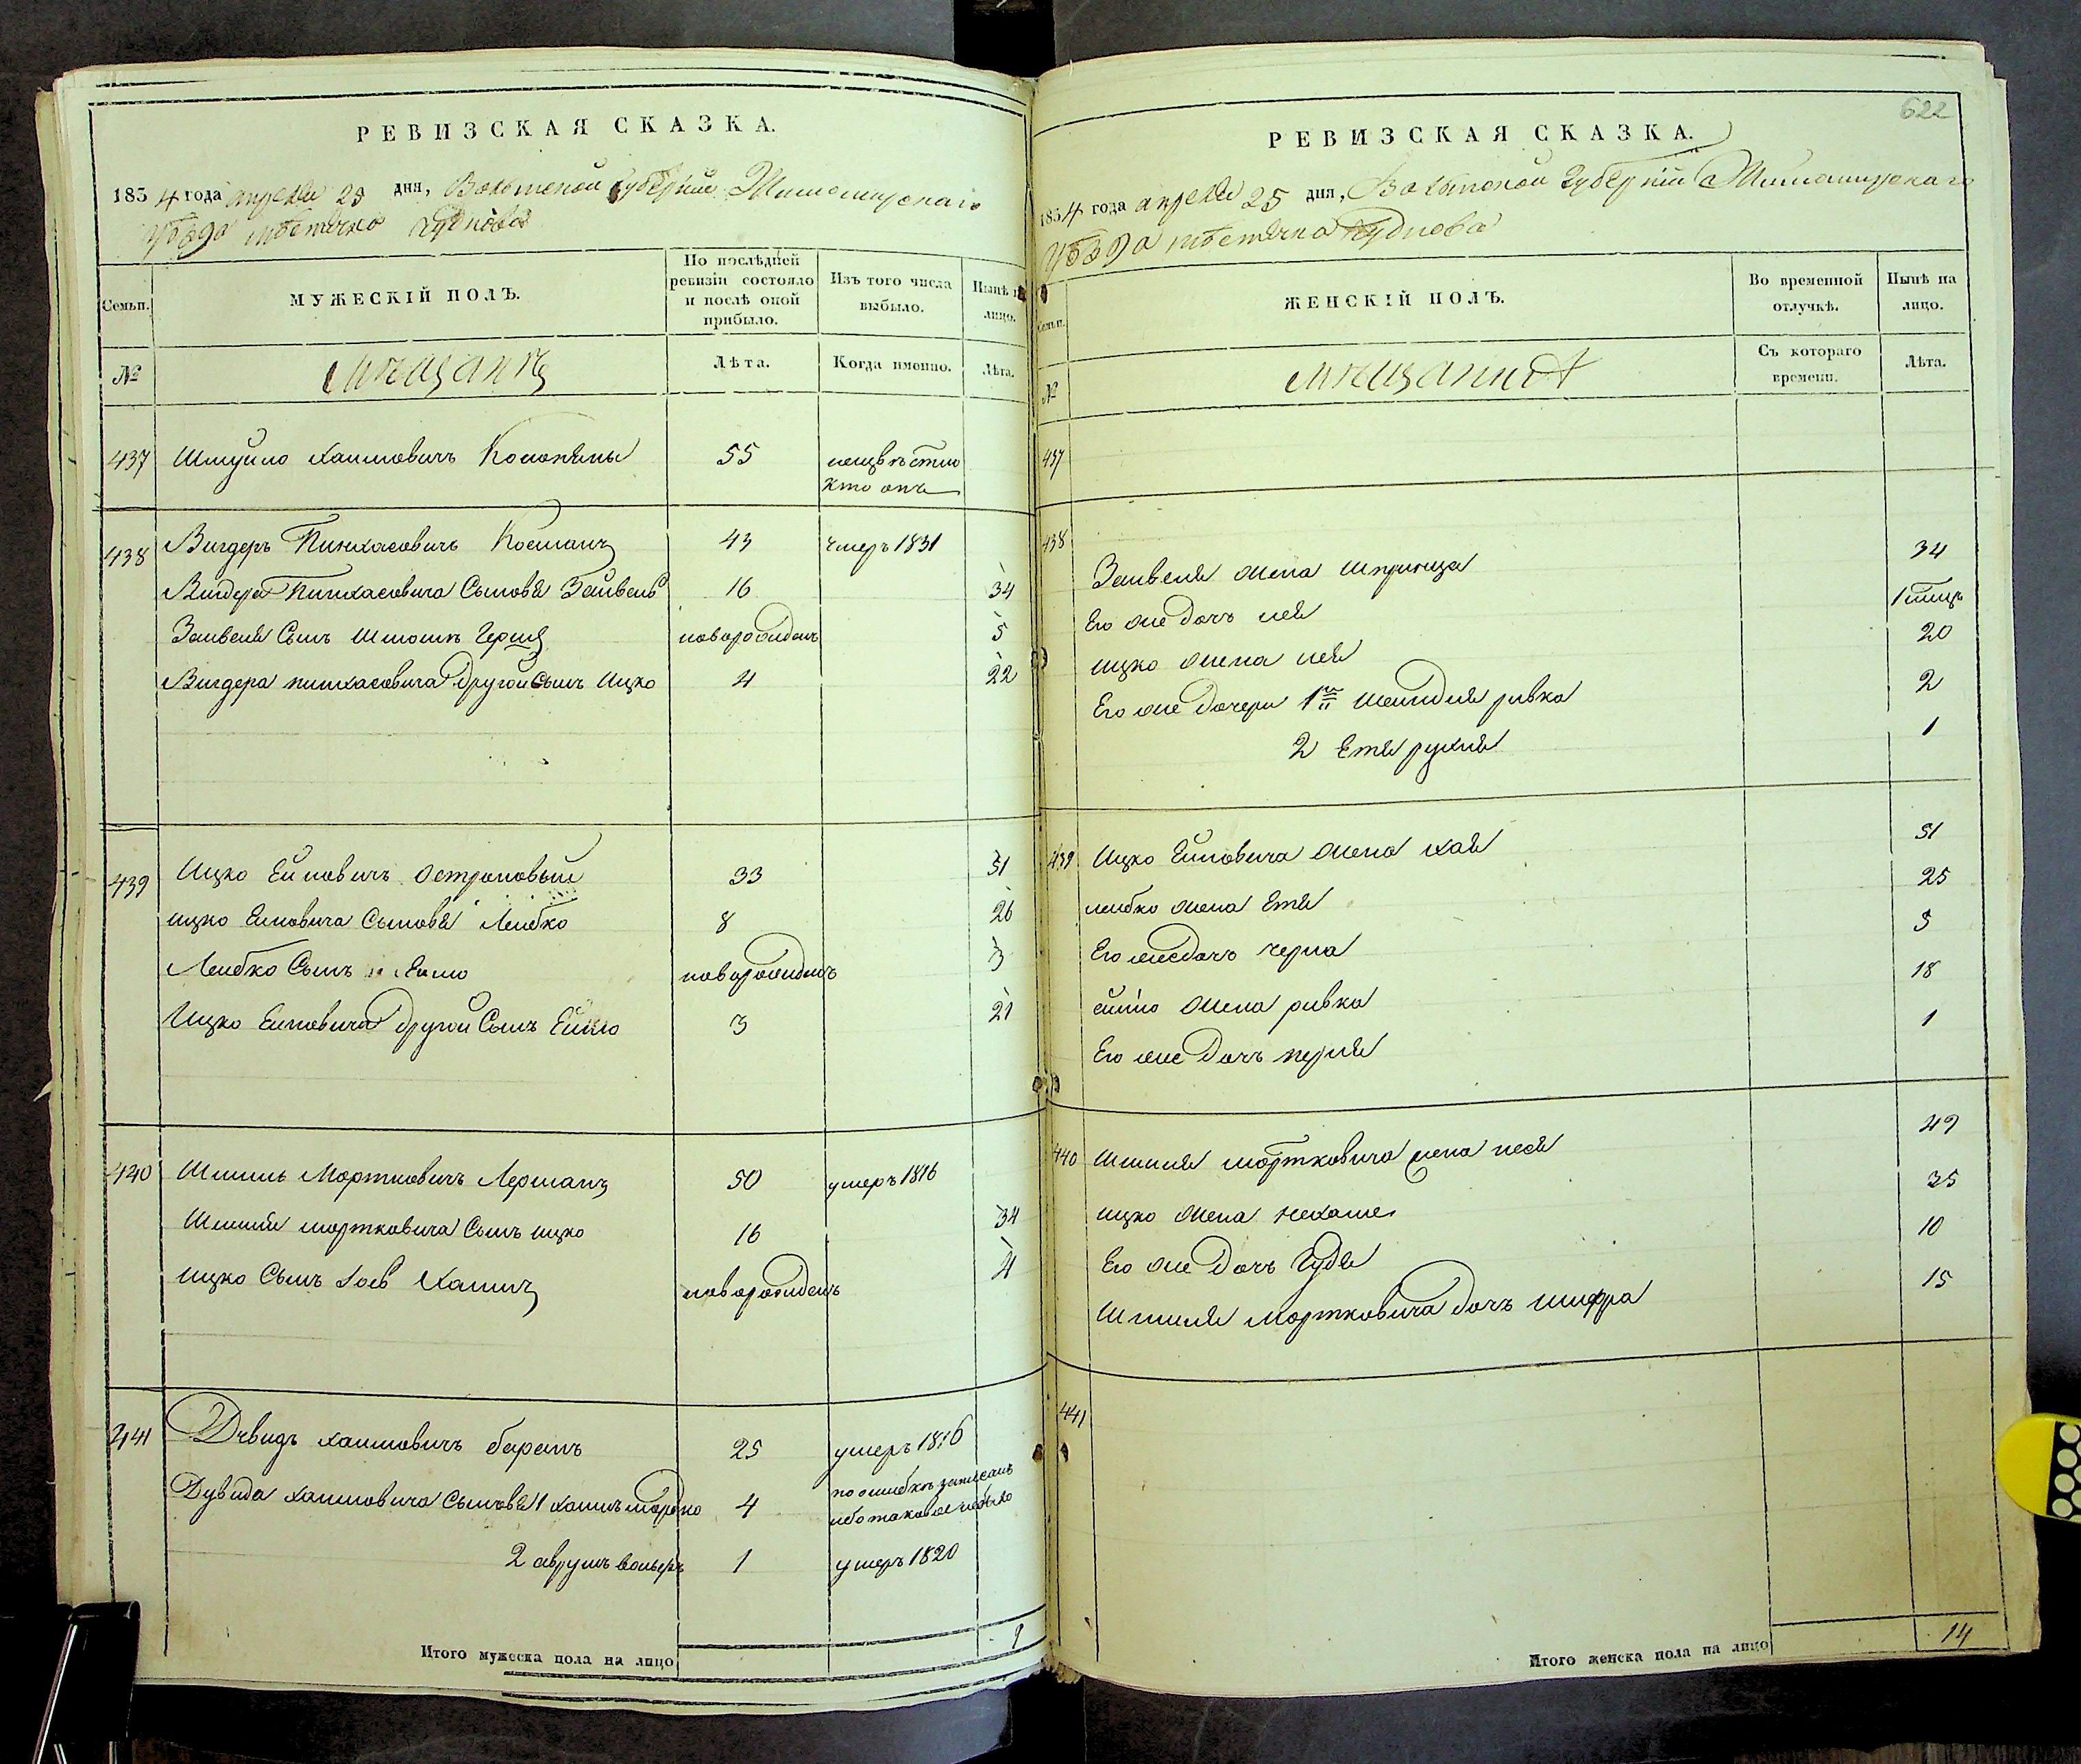 РЕВИЗСКАЯ СКАЗКА.
1834 года апреля 25 дня, Волынской губернии Житомирскаго
уѣзда мѣстечка Чуднова
Семьи.
МУЖЕСКІЙ ПОЛЪ.
По послѣдней ревизіи состояло и послѣ оной прибыло.
Изъ того числа выбыло.
Нынѣ на лицо.
№
мѣщанъ
Лѣта.
Когда именно.
Лѣта.
437 Шмуйло Хаимовичъ 55 неизвѣстно
кто онъ
438 Вигдеръ Пинхасовичъ Косманъ 43 умеръ 1831
Вигдера Пинхасовича Сыновя Зайвель 16 34
Зайвеля Сынъ Шлиомъ Герш новорожденъ 5
Вигдера пинхасовича Другой сынъ Ицко 4 22
439 Ицко Ейновичъ Остроновый 33 51
ицко Ейновича Сыновя Лейбко 8 26
Лейбко Сынъ новорожденъ 3
Ицко Ейновича Другой Сынъ Ейно 3 21
440 Шмиль Мортковичъ Лерманъ 50 умеръ 1816
Шмиля мортковича Сынъ ицко 16 34
ицко Сынъ Хаимъ новорожденъ 4
441 Дувидъ хаимовичъ баранъ 25 умеръ 1816
Дувида хаимовича Сыновя 1 хаимъ мордко 4 по ошибкѣ записанъ
ибо таковое небыло
2 аврумъ вольфъ 1 умеръ 1820
Итого мужеска пола на лицо 9
622
РЕВИЗСКАЯ СКАЗКА.
1834 года апреля 25 дня, Волынской губерніи Житомирскаго
уѣзда мѣстечка Чуднова
Семьи.
ЖЕНСКІЙ ПОЛЪ.
Во временной отлучкѣ.
Нынѣ на лицо.
№
мѣщанки
Съ котораго времени.
Лѣта.
437
438
Зайвеля жена шпринца 34
Его же дочъ лея
ицко жена лея 20
Его же дочери 1я шейндля ривка 2
2 Етя рухля 1
439 Ицко Ейновича жена хая 51
лейбко жена Етя 25
Его же дочъ черна 5
ейно жена ривка 18
Его же дочъ перля 1
440 Шмиля мортковича жена песя 49
ицко жена нехаме 35
Его же дочъ Гудя 10
Шмиля Мортковича дочъ шифра 15
441
Итого женска пола на лицо 14